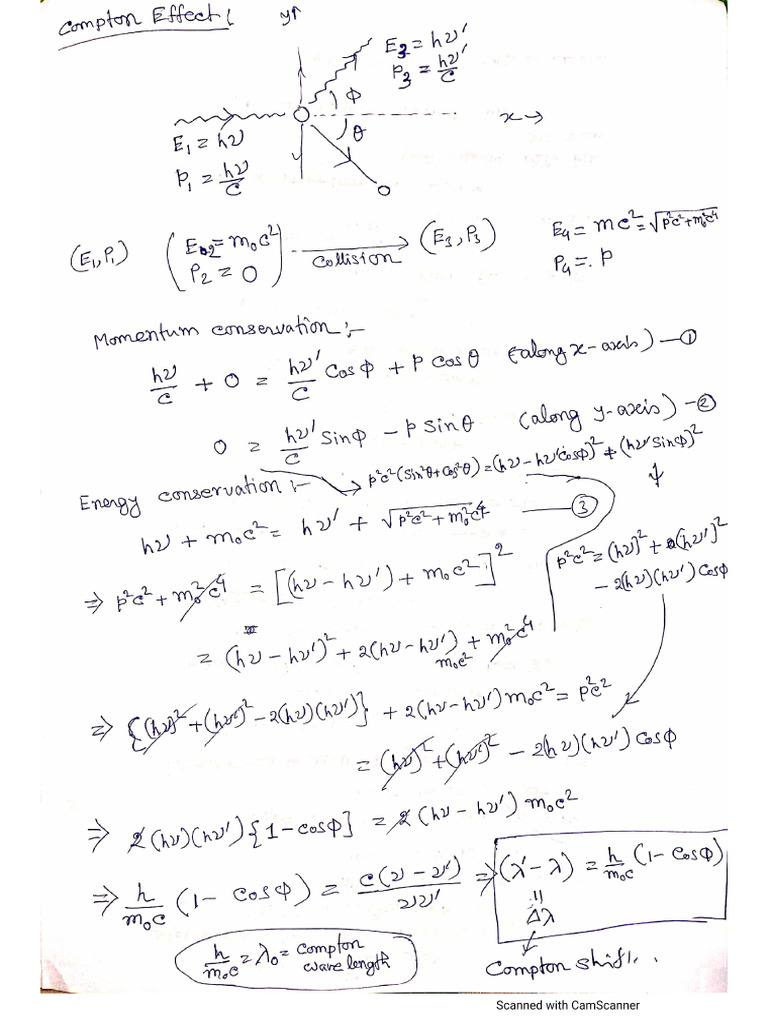 Compton Effect :
y↑
E₃ = hν'
P₃ = hν'/c
ϕ
θ
x →
E₁ = hν
P₁ = hν/c
(E₁, P₁) (E₂ = m₀c², P₂ = 0) ⟶ Collision (E₃, P₃) E₄ = mc² = √(p²c² + m₀²c⁴)
P₄ = p
Momentum conservation :-
hν/c + 0 = hν'/c Cosϕ + p Cosθ (along x-axis) — ①
0 = hν'/c Sinϕ - p Sinθ (along y-axis) — ②
p²c² (Sin²θ + Cos²θ) = (hν - hν' Cosϕ)² + (hν' Sinϕ)²
Energy conservation :-
hν + m₀c² = hν' + √(p²c² + m₀²c⁴) — ③
p²c² = (hν)² + (hν')²
- 2(hν)(hν') Cosϕ
⇒ p²c² + m₀²c⁴ = [(hν - hν') + m₀c²]²
= (hν - hν')² + 2(hν - hν') m₀c² + m₀²c⁴
⇒ {(hν)² + (hν')² - 2(hν)(hν')} + 2(hν - hν') m₀c² = p²c²
= (hν)² + (hν')² - 2(hν)(hν') Cosϕ
⇒ 2(hν)(hν') {1 - cosϕ} = 2(hν - hν') m₀c²
⇒ h/m₀c (1 - cosϕ) = c(ν - ν')/νν' ⇒ (λ' - λ) = h/m₀c (1 - Cosϕ)
Δλ
h/m₀c = λ₀ = Compton wave length
Compton shift..
Scanned with CamScanner